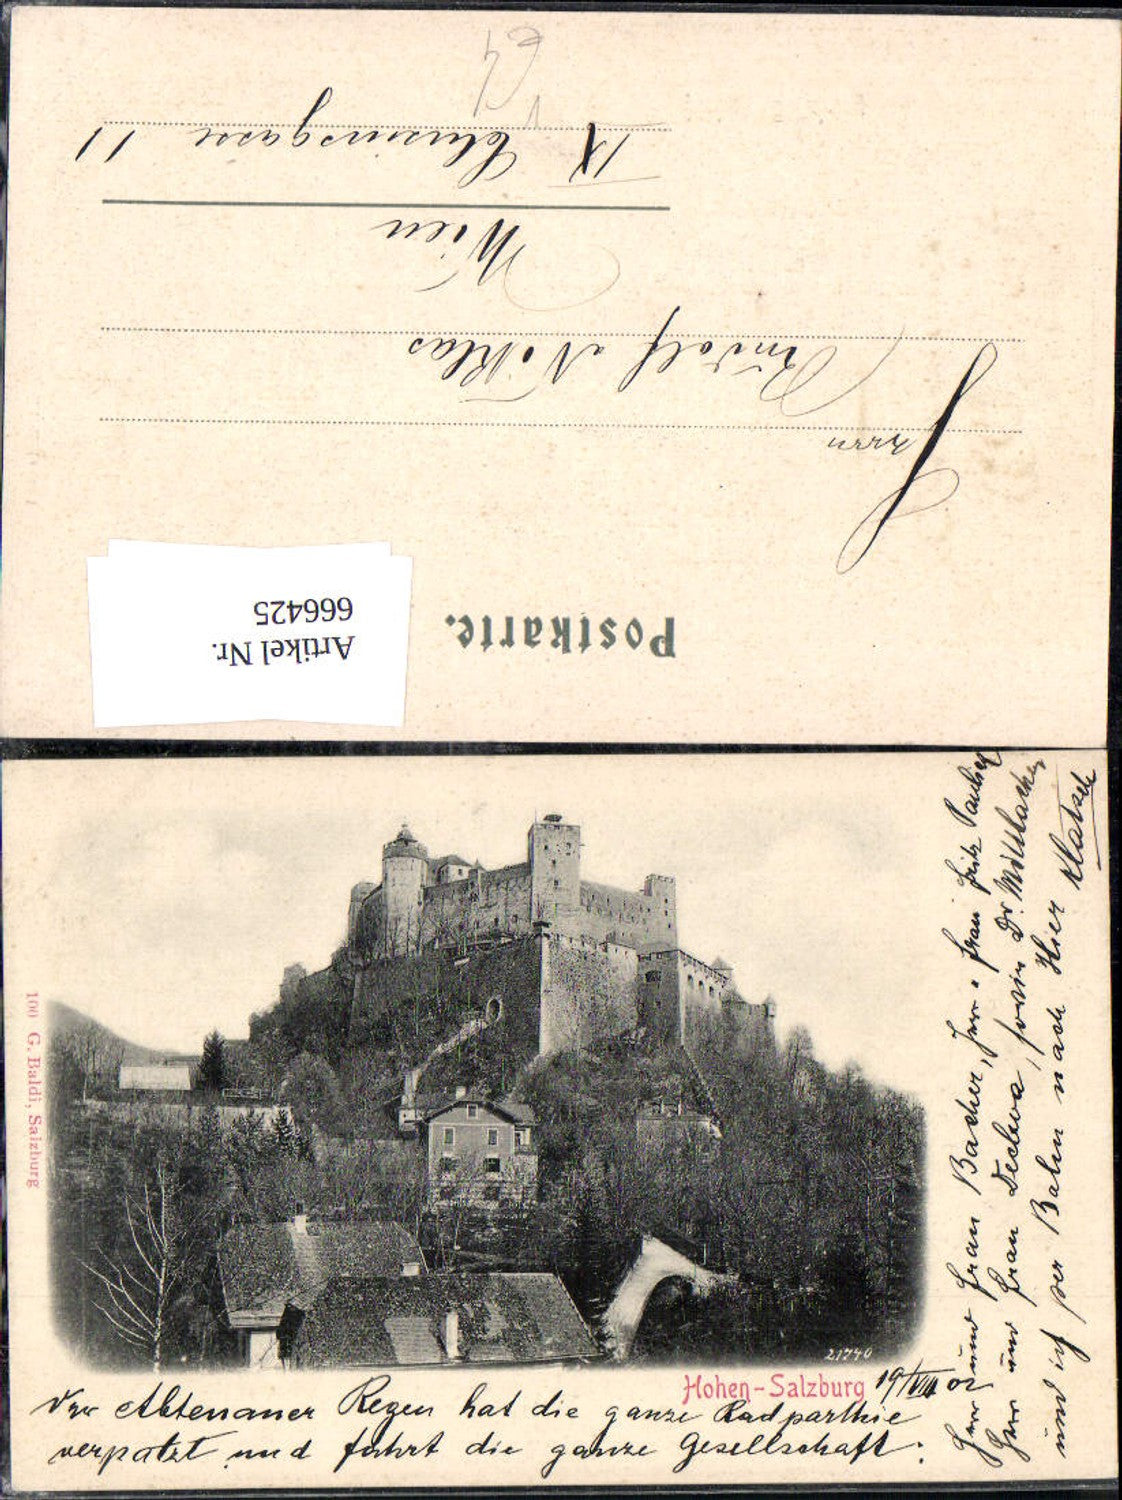 Postkarte.
Artikel Nr.
666425
Herrn
Rudolf Niklas
Wien
IX Clusiusgasse 11
100 G. Baldi, Salzburg
21740
Hohen-Salzburg
19/VIII 02
Der Abtenauer Regen hat die ganze Radparthie
verpatzt und führt die ganze Gesellschaft:
Herr und Frau Bacher, Herr u Frau Fritz
Herr und Frau Dechva, sowie Dr.
und ich per Bahn nach Hier Klatsch